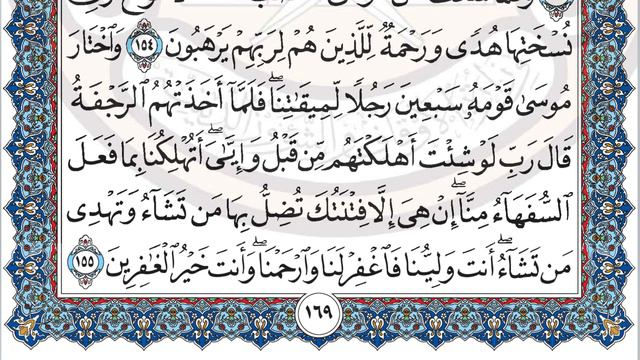 نُسْخَتِهَا هُدًى وَرَحْمَةٌ لِّلَّذِينَ هُمْ لِرَبِّهِمْ يَرْهَبُونَ ١٥٤ وَٱخْتَارَ
مُوسَىٰ قَوْمَهُۥ سَبْعِينَ رَجُلًا لِّمِيقَٰتِنَاۖ فَلَمَّآ أَخَذَتْهُمُ ٱلرَّجْفَةُ
قَالَ رَبِّ لَوْ شِئْتَ أَهْلَكْتَهُم مِّن قَبْلُ وَإِيَّٰىَۖ أَتُهْلِكُنَا بِمَا فَعَلَ
ٱلسُّفَهَآءُ مِنَّآۖ إِنْ هِىَ إِلَّا فِتْنَتُكَ تُضِلُّ بِهَا مَن تَشَآءُ وَتَهْدِى
مَن تَشَآءُۖ أَنتَ وَلِيُّنَا فَٱغْفِرْ لَنَا وَٱرْحَمْنَاۖ وَأَنتَ خَيْرُ ٱلْغَٰفِرِينَ ١٥٥
١٦٩